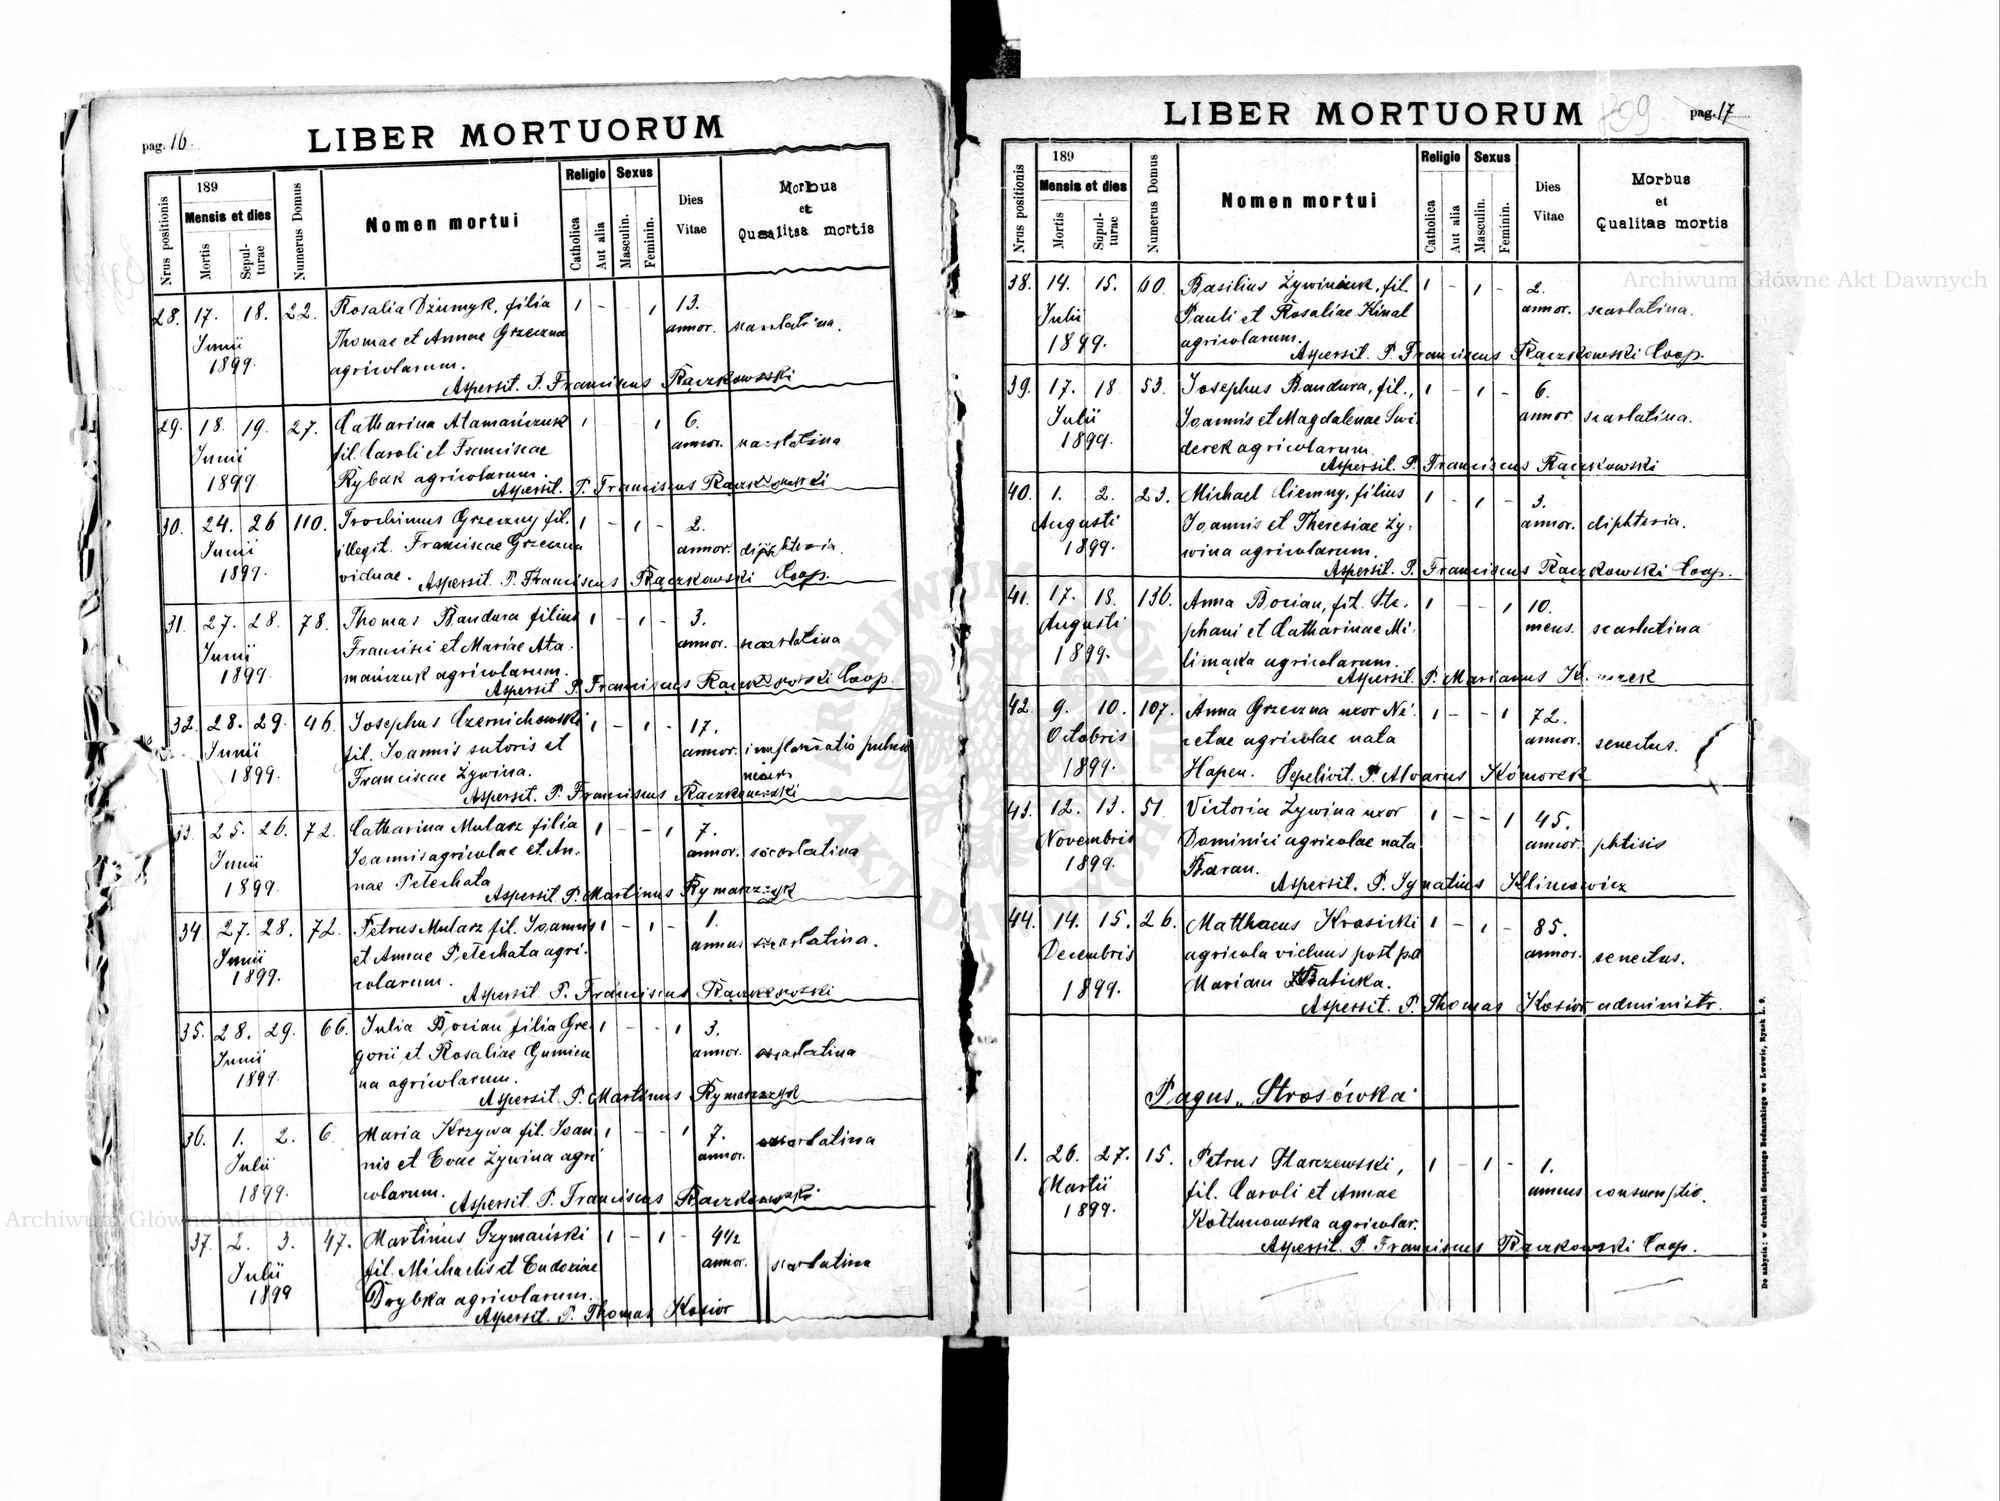 pag. 16.
LIBER MORTUORUM
Nrus positionis
189
Mensis et dies
Mortis
Sepulturae
Numerus Domus
Nomen mortui
Religio
Catholica
Aut alia
Sexus
Masculin.
Feminin.
Dies
Vitae
Morbus
et
Qualitas mortis
28. 17. 18. 22. Rosalia Dziumyk, filia 1 - 1 13.
Junii Thomae et Annae Grzeczna annor. scarlatina.
1899. agricolarum.
Aspersit. P. Franciscus Rączkowski
29. 18. 19. 27. Catharina Atamańczuk 1 1 6.
Junii fil. Caroli et Franciscae annor. scarlatina
1899. Rybak agricolarum.
Aspersit. P. Franciscus Rączkowski
30. 24. 26 110. Trochimus Grzeczny fil. 1 - 1 - 2.
Junii illegit. Franciscae Grzeczna annor. diphtheria.
1899. viduae. Aspersit. P. Franciscus Rączkowski Coop.
31. 27. 28. 78. Thomas Bandura filius 1 - 1 - 3.
Junii Francisci et Mariae Ata- annor. scarlatina
1899. mańczuk agricolarum.
Aspersit. P. Franciscus Rączkowski Coop.
32. 28. 29. 46. Josephus Czernichowski 1 - 1 - 17.
Junii fil. Joannis sutoris et annor. inflamatio pulmo
1899. Franciscae Żywina.
Aspersit. P. Franciscus Rączkowski
33. 25. 26. 72. Catharina Mularz filia 1 - - 1 7.
Junii Joannis agricolae et An- annor. scarlatina
1899. nae Petechata
Aspersit P. Martinus Rymarczyk
34. 27. 28. 72. Petrus Mularz fil. Joannis 1 - 1 - 1.
Junii et Annae Petechata agri- annus scarlatina.
1899. colarum.
Aspersit P. Franciscus Rączkowski
35. 28. 29. 66. Julia Bocian filia Gre- 1 - - 1 3.
Junii gorii et Rosaliae Gumien annor. scarlatina
1899. na agricolarum.
Aspersit P. Martinus Rymarczyk
36. 1. 2. 6. Maria Krzywa fil. Joan 1 - - 1 7. scarlatina
Julii nis et Evae Żywina agri annor.
1899. colarum.
Aspersit P. Franciscus Rączkowski
37. 2. 3. 47. Martinus Szymański 1 - 1 - 4 1/2
Julii fil. Michaelis et Eudoxiae annor. scarlatina
1899 Drybka agricolarum.
Aspersit. P. Thomas Kosior
LIBER MORTUORUM
pag. 17
Nrus positionis
189
Mensis et dies
Mortis
Sepulturae
Numerus Domus
Nomen mortui
Religio
Catholica
Aut alia
Sexus
Masculin.
Feminin.
Dies
Vitae
Morbus
et
Qualitas mortis
38. 14. 15. 60. Basilius Żywiniuk, fil. 1 - 1 - 2.
Julii Pauli et Rosaliae Kinal annor. scarlatina.
1899. agricolarum.
Aspersit. P. Franciscus Rączkowski Coop.
39. 17. 18 53. Josephus Bandura, fil., 1 - 1 - 6.
Julii Joannis et Magdalenae Swi- annor. scarlatina.
1899. derek agricolarum.
Aspersit. P. Franciscus Rączkowski
40. 1. 2. 23. Michael Ciemny, filius 1 - 1 - 3.
Augusti Joannis et Theresiae Ży- annor. diphteria.
1899. wina agricolarum.
Aspersit. P. Franciscus Rączkowski Coop.
41. 17. 18. 136. Anna Bocian, fil. Ste- 1 - - 1 10.
Augusti phani et Catharinae Mi- mens. scarlatina
1899. limąka agricolarum.
Aspersit. P. Marianus
42. 9. 10. 107. Anna Grzeczna uxor Ni- 1 - - 1 72.
Octobris cetae agricolae nata annor. senectus.
1899. Hapen. Sepelivit. P. Alvarius Komorek
43. 12. 13. 51. Victoria Żywina uxor 1 - - 1 45.
Novembris Dominici agricolae nata annor. phtisis
1899. Baran.
Aspersit. P. Ignatius Klimowicz
44. 14. 15. 26. Matthaeus Krasicki 1 - 1 - 85.
Decembris agricola viduus post pd annor. senectus.
1899. Mariam Baticka.
Aspersit. P. Thomas Kosior administr.
Pagus „Strosówka"
1. 26. 27. 15. Petrus Starczewski, 1 - 1 - 1.
Martii fil. Caroli et Annae annus consumptio.
1899. Kottunowska agricolar.
Aspersit. P. Franciscus Rączkowski Coop.
Do nabycia: w drukarni Szczęsnego Bednarskiego we Lwowie, Rynek L. 9.
Archiwum Główne Akt Dawnych
Archiwum Główne Akt Dawnych
ARCHIWUM GŁÓWNE AKT DAWNYCH